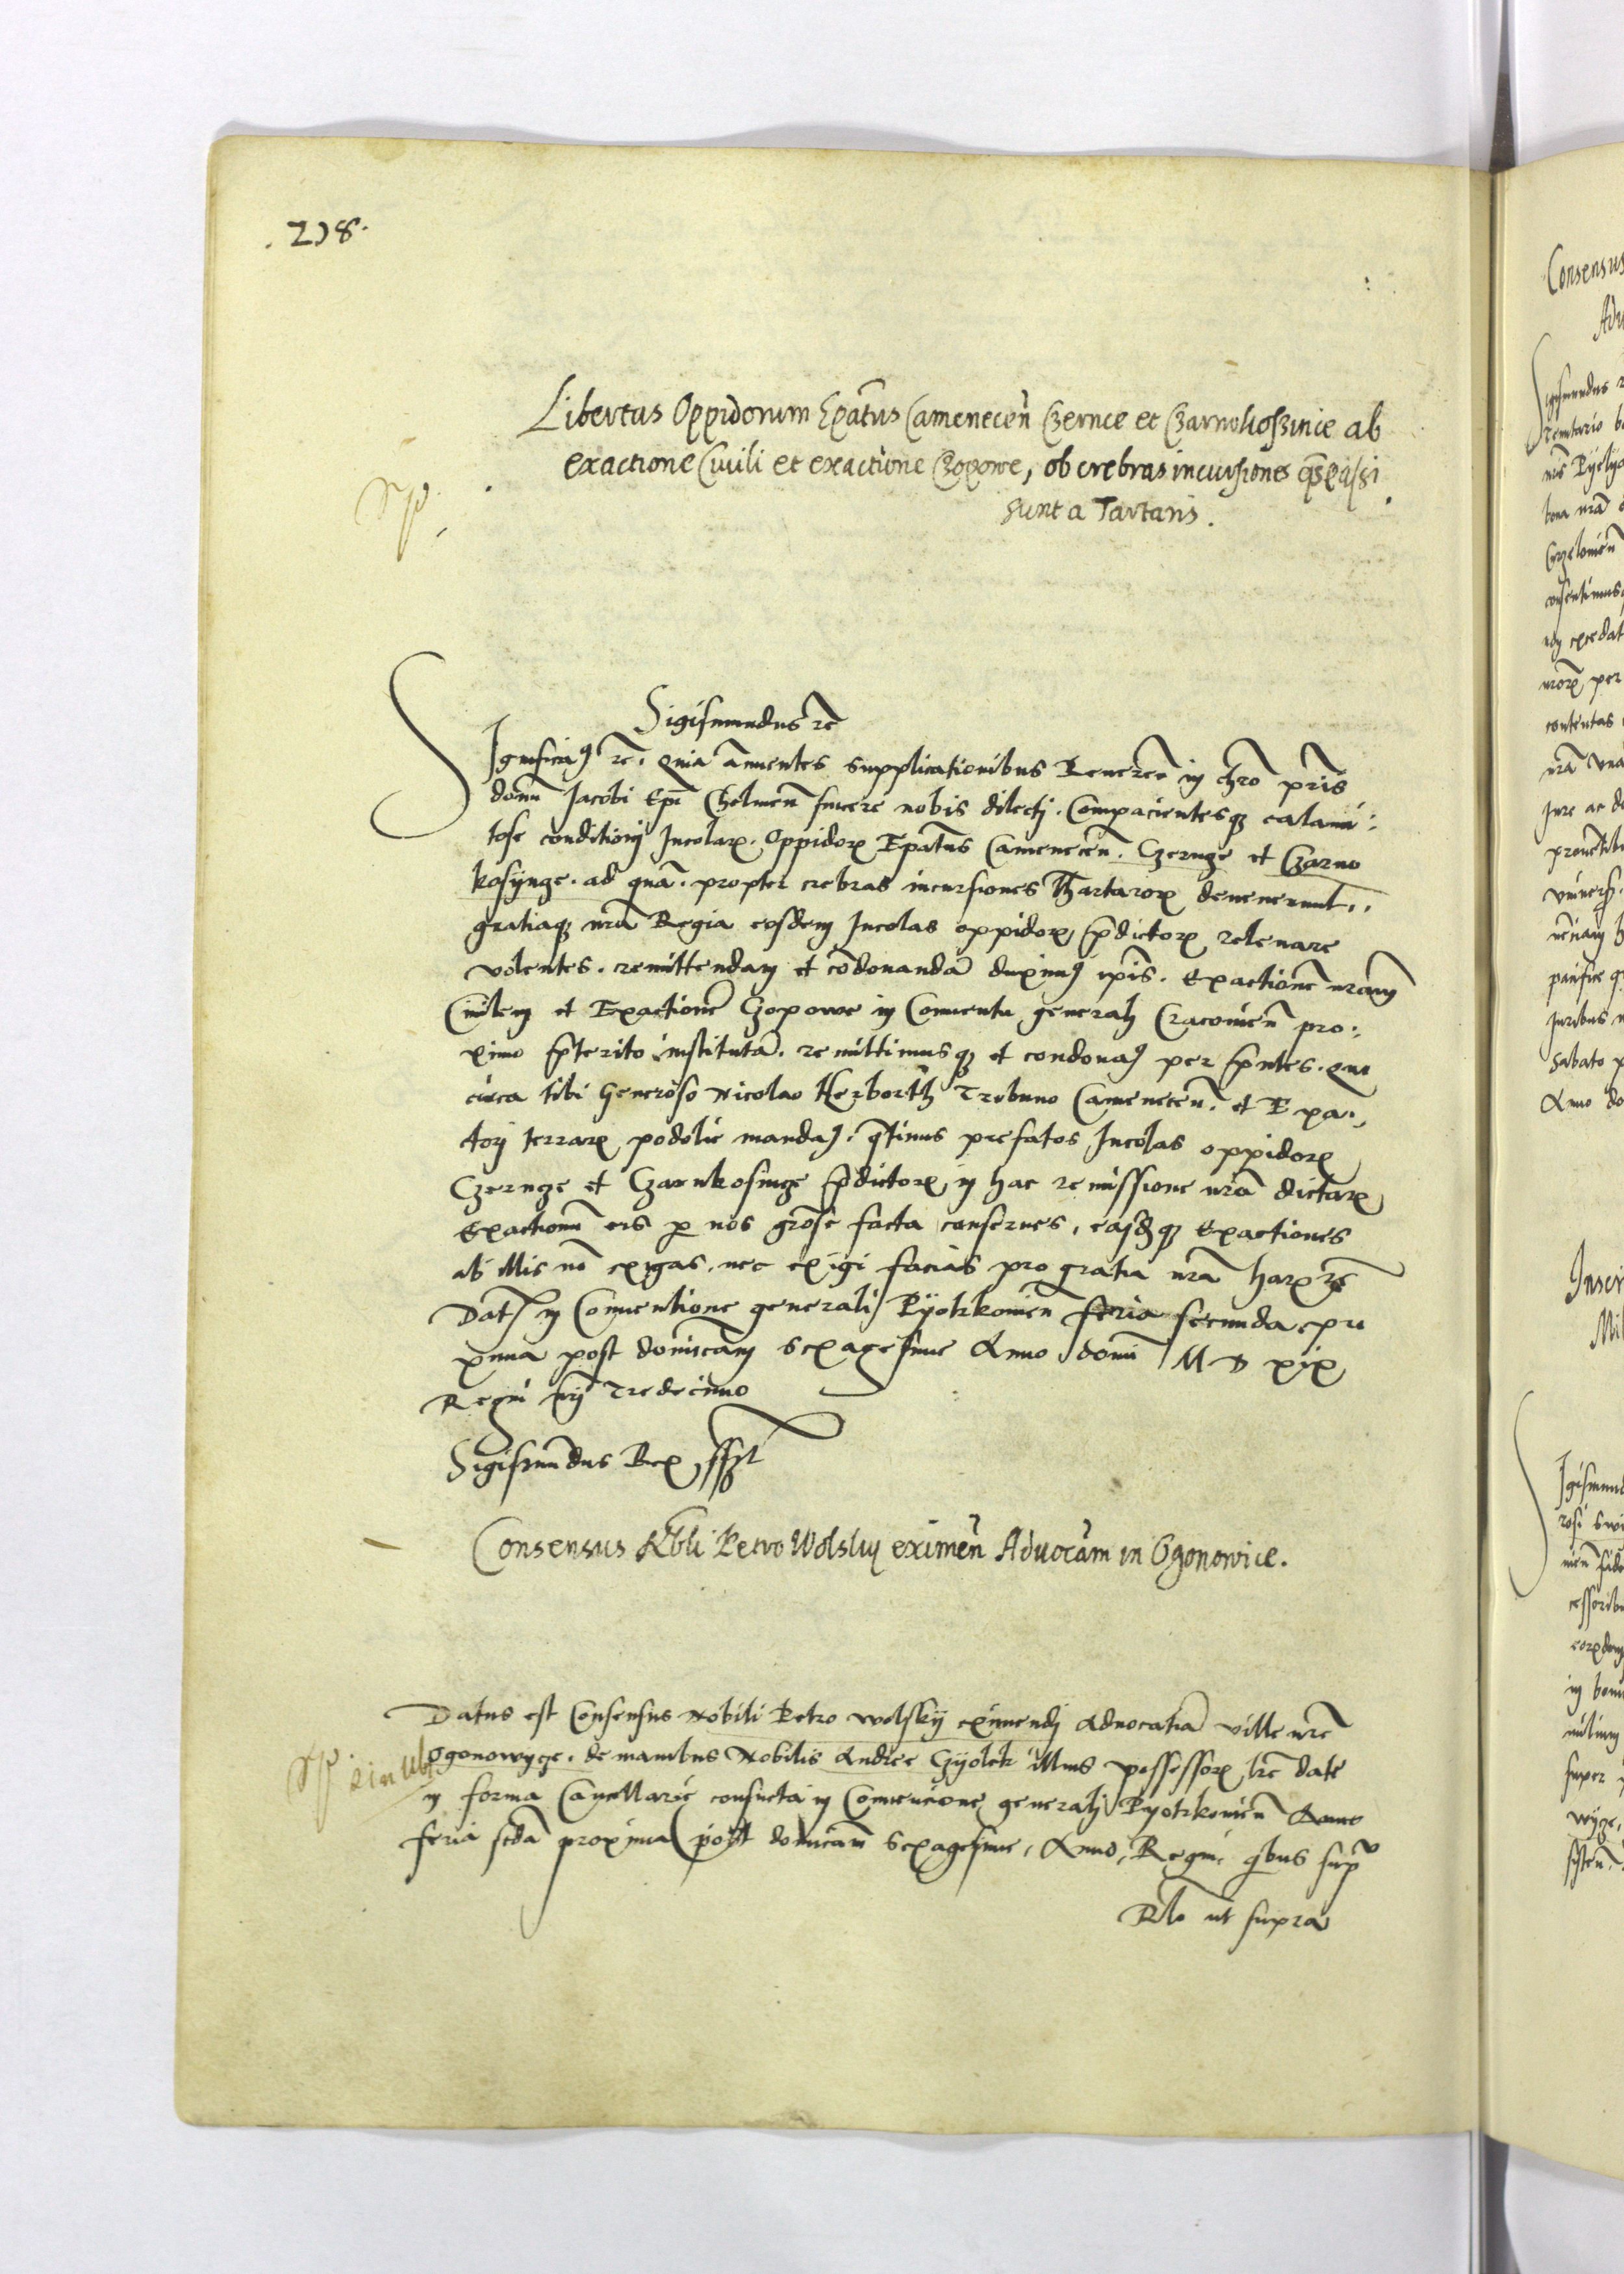 .218.
Libertas Oppidorum Epatus Camenecen Czernce et Czarnokoszince ab
exactione Civili et exactione Czopowe, ob crebras incursiones qs passi
sunt a Tartaris.
Sigismundus rc
Significamus rc. quia annuentes supplicationibus Reueren in chro pris
domi Jacobi Epi Chelmen sincere nobis dilecti. Compacientesq calami:
tose conditioni Incolar. Oppidor Epatus Camenecen. Czernze et Czarno
kosynze. ad qua. propter crebras incursiones Thartaror deuenerunt.
gratiaq nra Regia eosdem Incolas oppidor pdictor releuare
volentes. remittendam et codonanda duximus ipis. Exactione nram
Ciuilem et Exactione Czopowe in Conuentu generali Cracouien pro:
ximo pterito instituta. remittimusq et condonamus per pntes. Quo
circa tibi Generoso Nicolao Herborth Tribuno Camenecen. et Exa:
ctori terrar podolie mandamus. qtinus prefatos Incolas oppidor
Czernze et Czarnkosinze pdictor in hac remissione nra dictar
Exactionu eis p nos grose facta conserues, easdq Exactiones
ab illis no exigas. nec exigi facias pro gratia nra harz rc
Dat in Conuentione generali Pyotrkouien feria secunda pro
xima post dominicam Sexagesime Anno domi M D xix
Regni nri Tredecimo
Sigismundus Rex sst
Consensus Nbli Petro Wolsky eximen Aduocam in Ogonowice.
Datus est Consensus Nobili Petro Wolsky eximendi Aduocatia ville nre
Ogonowyze. de manibus Nobilis Andree Czyolek illius possessor lre date
in forma Cancellarie consueta in Conuencione generali Pyotrkouien Anno
feria scda proxima post dominicam Sexagesime, Anno, Regni quibus supra
Rlo ut supra